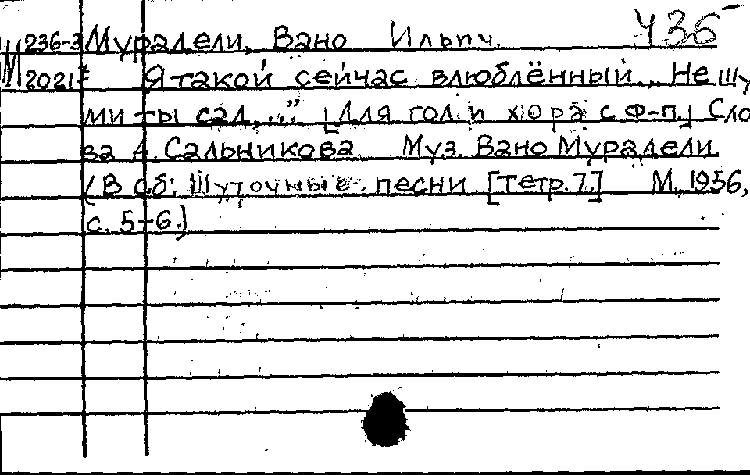 436
М 236-3 Мурадели, Вано Ильич.
2021 Я такой сейчас влюблённый... Не шу
ми ты сад..." [Для гол. и хора с ф-п.] Сло
ва А. Сальникова Муз. Вано Мурадели.
(В сб: Шуточные песни [Тетр. 7.] М. 1956,
с. 5-6.)